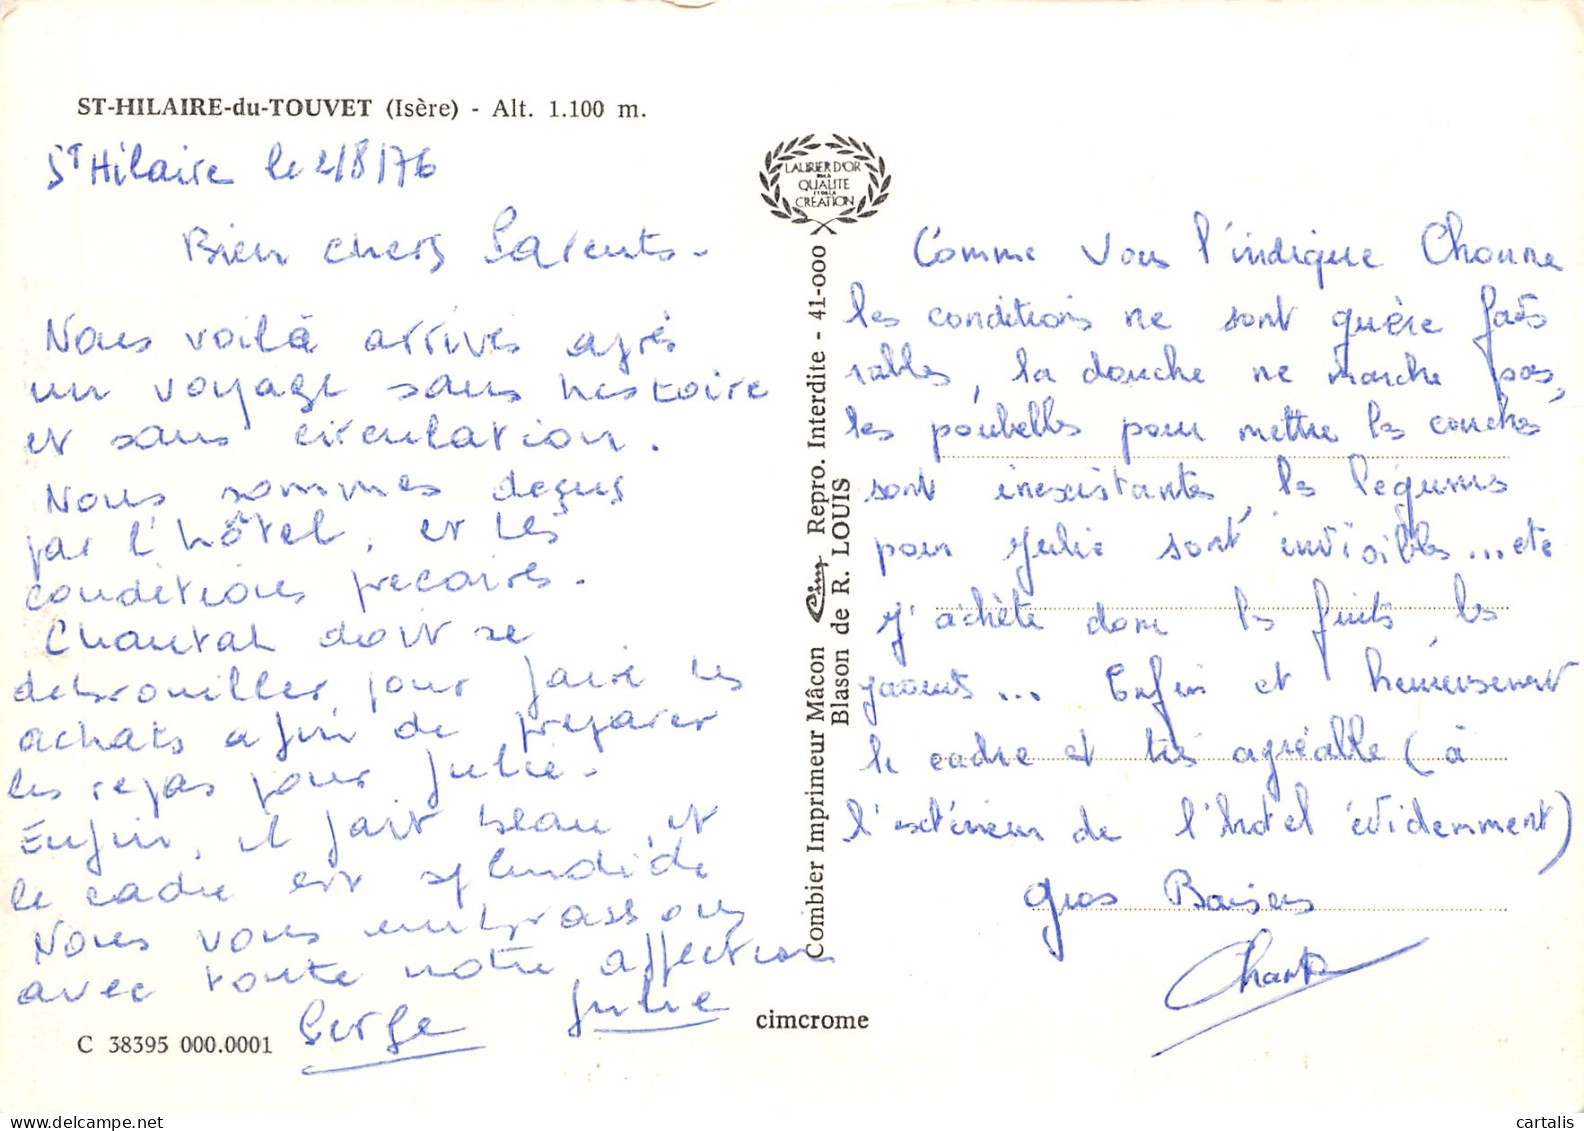 ST-HILAIRE-du-TOUVET (Isère) - Alt. 1.100 m.
St Hilaire le 2/8/76
Bien chers Parents.
Nous voilà arrivés après
un voyage sans histoire
et sans circulation.
Nous sommes deçus
par l'hôtel, et les
conditions precaires.
Chantal doit se
debrouiller pour faire les
achats afin de preparer
les repas pour Julie.
Enfin, il fait beau, et
le cadre est splendide
Nous vous embrassons
avec toute notre affection
Serge Julie
C 38395 000.0001
LAURIER D'OR
DE LA
QUALITE
ET DE LA
CREATION
Combier Imprimeur Mâcon Cim Repro. Interdite - 41-000
Blason de R. LOUIS
cimcrome
Comme vous l'indique
les conditions ne sont guère favo
rables, la douche ne marche pas,
les poubelles pour mettre les couches
sont inexistantes, les légumes
pour Julie sont invisibles... etc
J'achète donc les fruits, les
yaourts... Enfin et heureusement
le cadre et très agréable (à
l'extérieur de l'hotel évidemment)
Gros Baisers
Chantal
cartalis